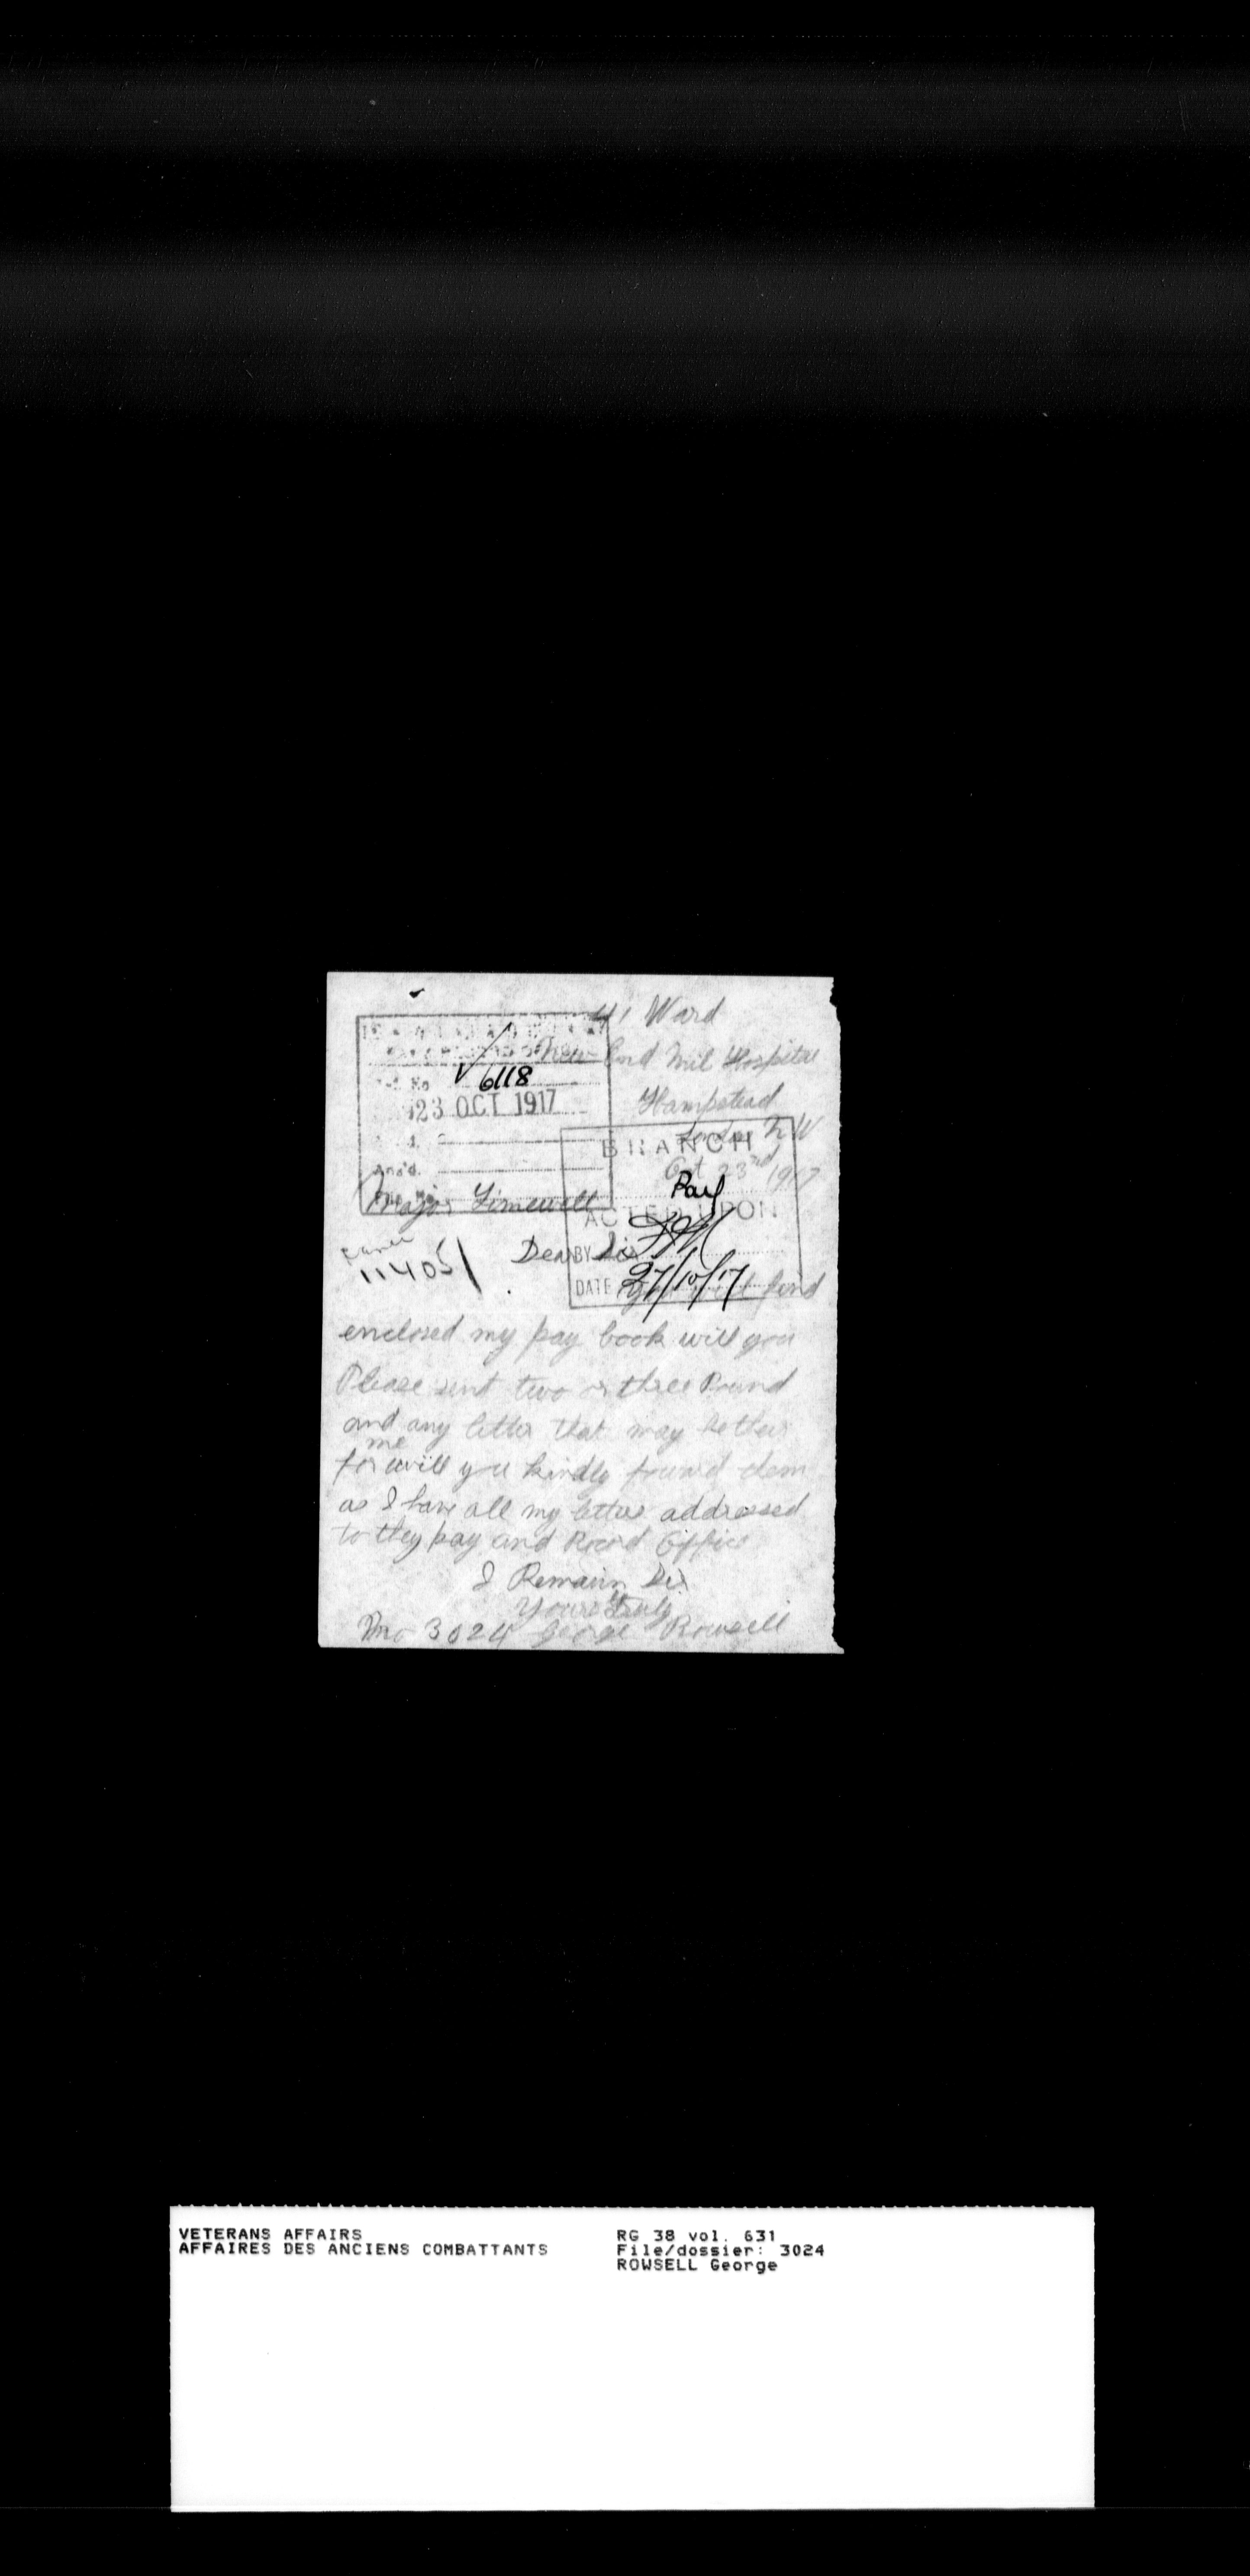 Ward
New End Mil Hospital
6118
Hampstead
23 OCT 1917
London N W
BRANCH
Oct 23rd 1917
Ans'd.
Pay
Major Timewell
ACTED UPON
Dear Sir
BY
11405
DATE 27/10/17
find
enclosed my pay book will you
Please sent two or three Pound
and any letter that may be
for me will you kindly them
as I have all my letters addressed
to they pay and Record Office
I Remain Sir
Yours Truly
No 3024 George Rowsell
VETERANS AFFAIRS
AFFAIRES DES ANCIENS COMBATTANTS
RG 38 vol. 631
File/dossier: 3024
ROWSELL George